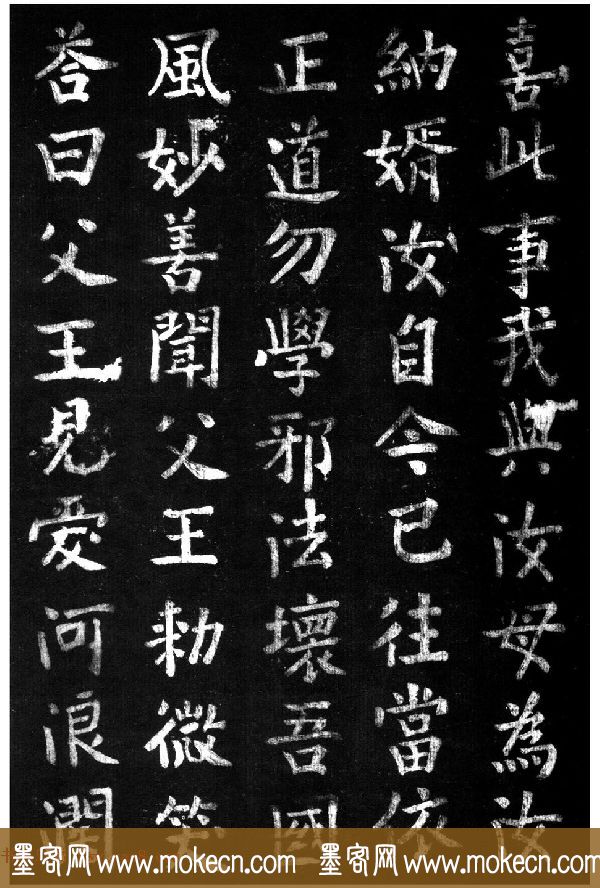 喜此事我與汝母為汝
納婿汝自今已往當依
正道勿學邪法壞吾國
風妙善聞父王勑微笑
荅曰父王見愛河浪濶
墨客网 www.mokecn.com 墨客网 www.mokecn.com